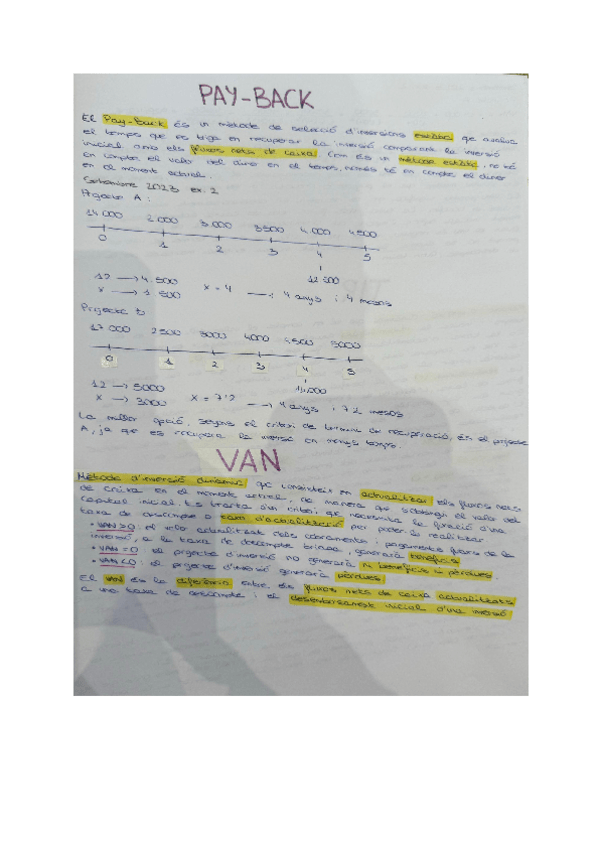 PAY-BACK
El Pay-Back és un mètode de selecció d'inversions estàtic que avalua
el temps que es triga en recuperar la inversió comparant la inversió
inicial amb els fluxos nets de caixa. Com és un mètode estàtic, no té
en compte el valor del diner en el temps, només té en compte el diner
en el moment actual.
Setembre 2023 ex. 2
Projecte A:
14.000 2.000 3.000 3.500 4.000 4.500
0 1 2 3 4 5
12.500
12 → 4.500
x → 1.500 x = 4 → 4 anys i 4 mesos
Projecte B
17.000 2500 3000 4000 4500 5000
0 1 2 3 4 5
14.000
12 → 5000
x → 3000 x = 7'2 → 4 anys i 7'2 mesos
La millor opció, segons el criteri de termini de recuperació, és el projecte
A, ja que es recupera la inversió en menys temps.
VAN
Mètode d'inversió dinàmic que consisteix en actualitzar els fluxos nets
de caixa en el moment actual, de manera que s'obtengui el valor del
capital inicial. Es tracta d'un criteri que necessita la fixació d'una
taxa de descompte o com d'actualització per poder-lo realitzar
• VAN>0: el valor actualitzat dels cobraments i pagaments futurs de la
inversió, a la taxa de descompte triada, generarà beneficis
• VAN=0: el projecte d'inversió no generarà ni beneficis ni pèrdues.
• VAN<0: el projecte d'inversió generarà pèrdues.
El VAN és la diferència entre els fluxos nets de caixa actualitzats
a una taxa de descompte i el desemborsament inicial d'una inversió